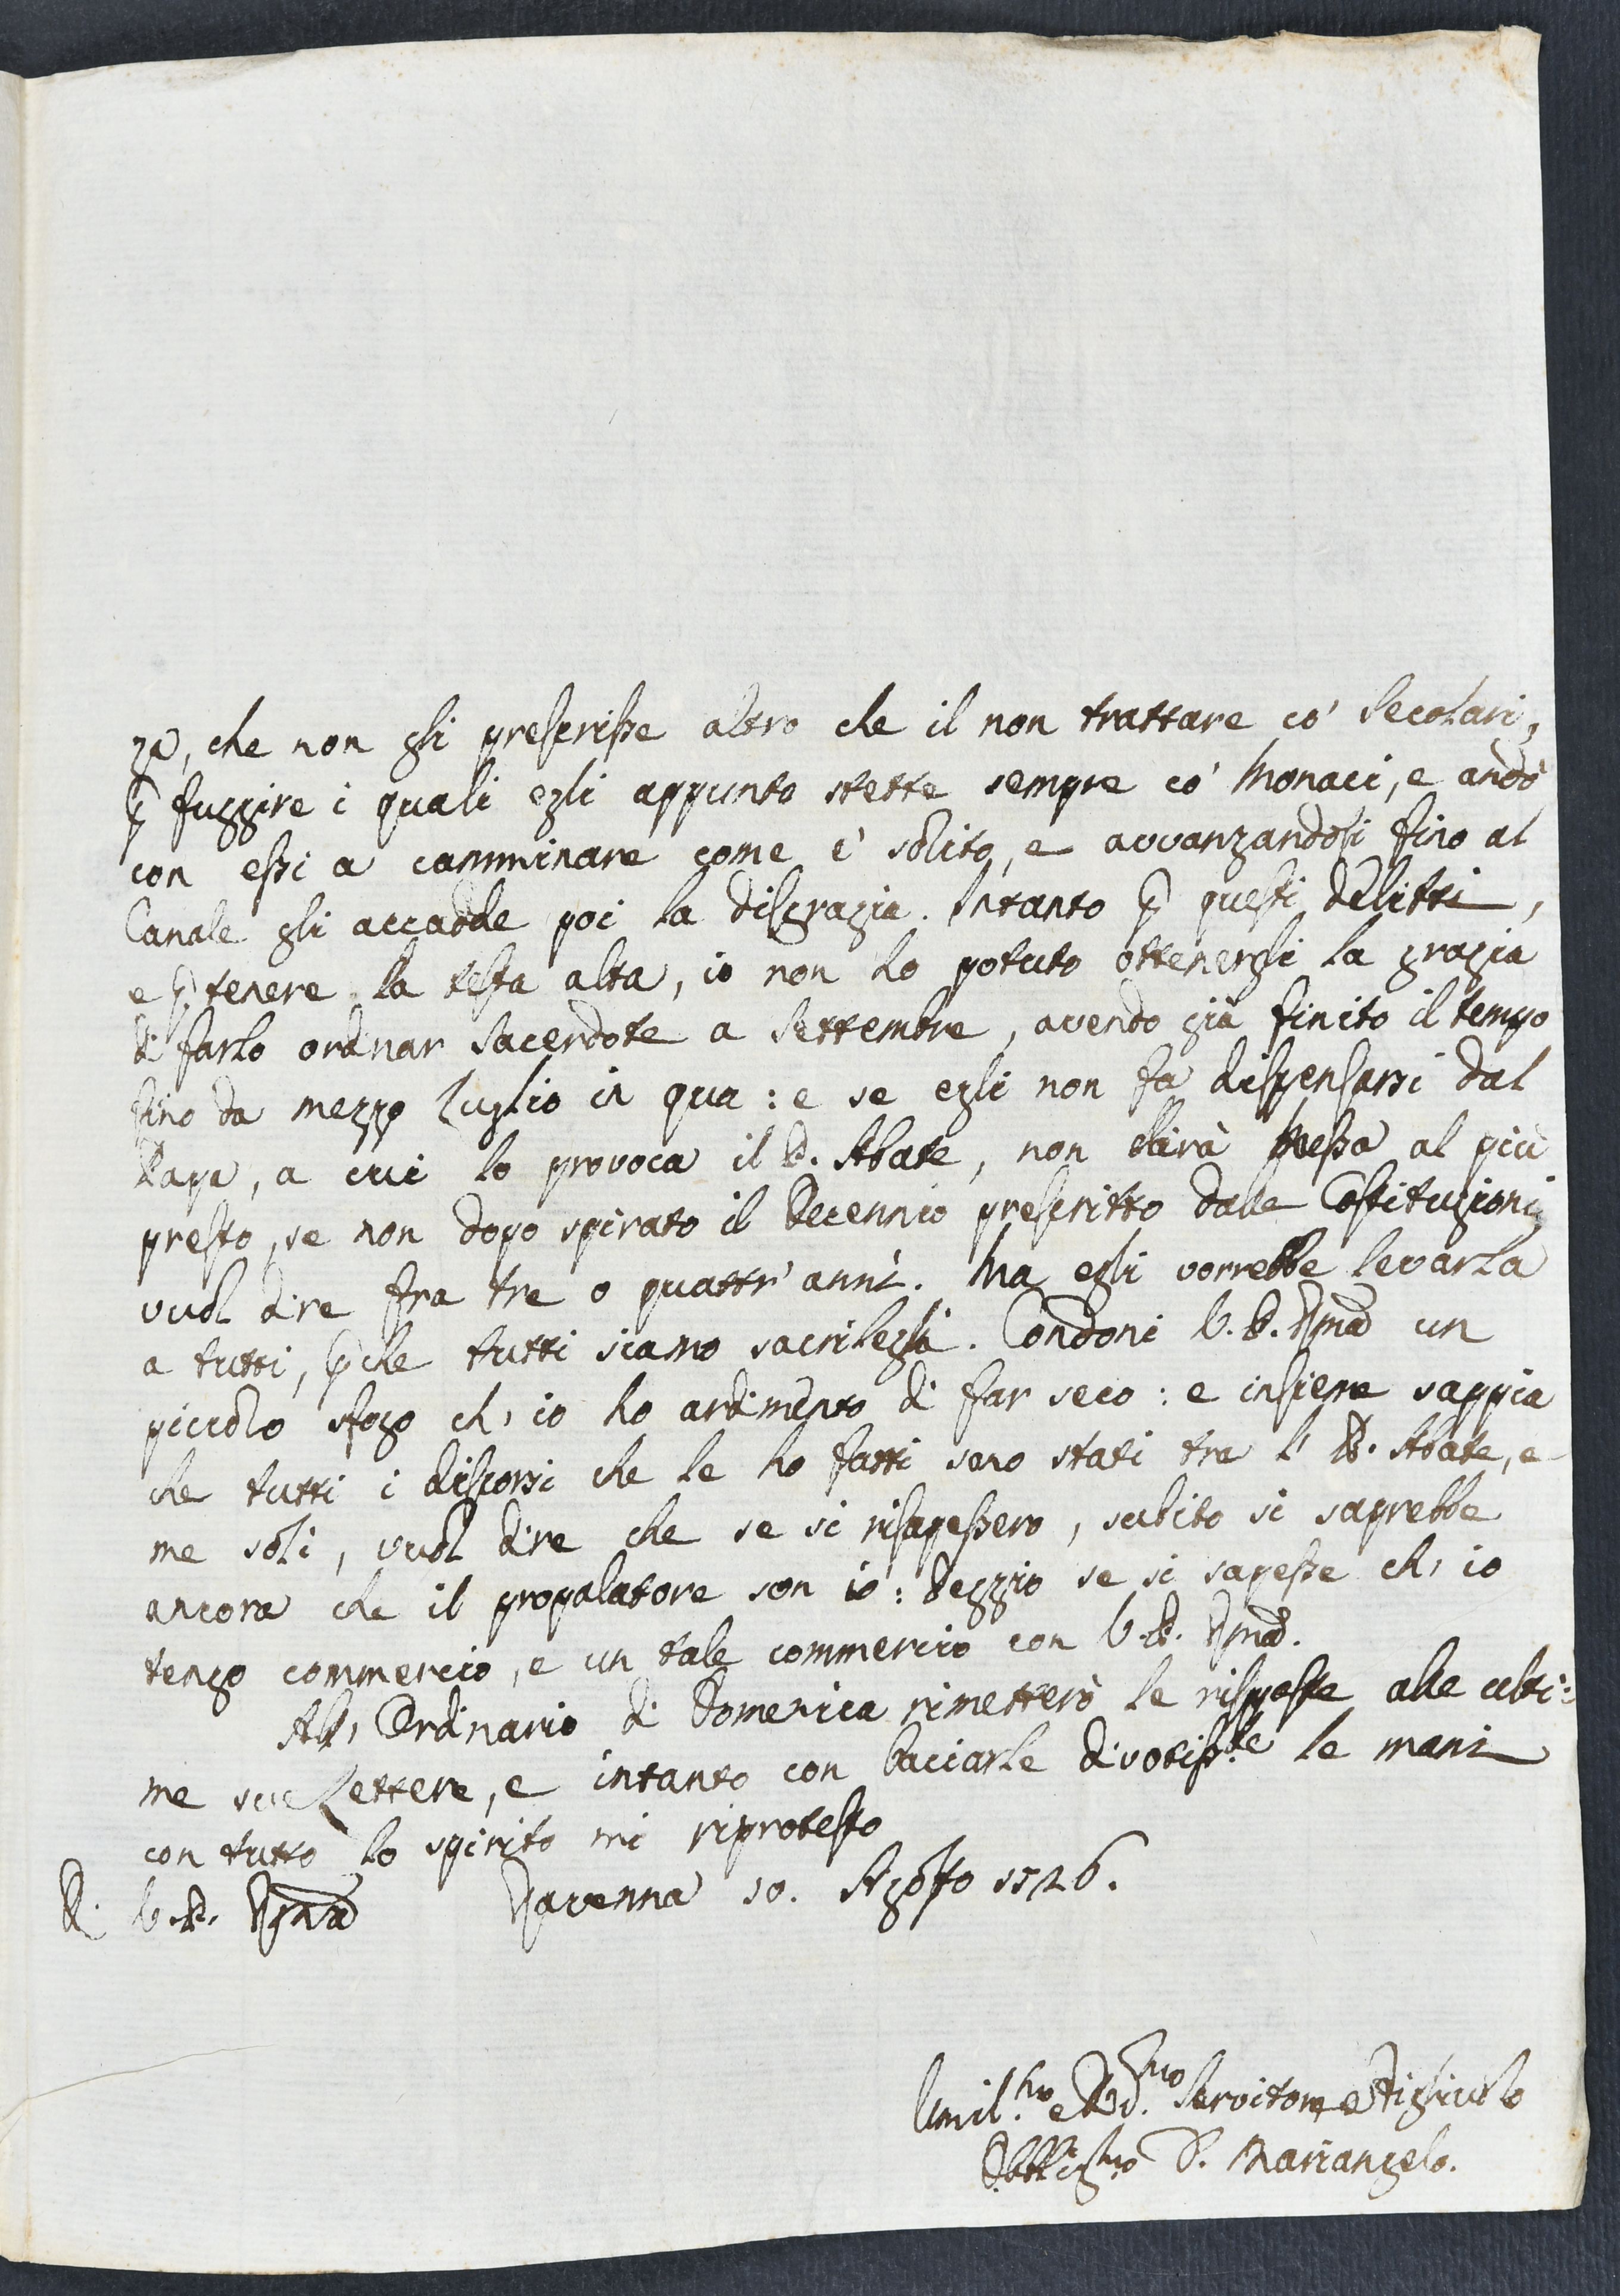 za, che non gli prescrisse altro che il non trattare co' Secolari,
p fuggire i quali egli appunto stette sempre co' Monaci, e andò
con essi a camminare come è solito, e avvanzandosi fino al
Canale gli accadde poi la disgrazia. Intanto p questi delitti,
e p tenere la testa alta, io non ho potuto ottenergli la grazia
di farlo ordinar Sacerdote a Settembre, avendo già finito il tempo
fino da mezzo Luglio in qua: e se egli non fa dispensarsi dal
Papa, a cui lo provoca il P. Abate, non dirà Messa al più
presto, se non dopo spirato il Decennio prescritto dalle Costituzioni,
vuol dire fra tre o quattr' anni. Ma egli vorrebbe levarla
a tutti, pche tutti siamo sacrileghi. Condoni V. P. Rma un
piccolo sfogo ch' io ho ardimento di far seco: e insieme sappia
che tutti i discorsi che le ho fatti sono stati tra l' P. Abate, e
me soli, vuol dire che se si risapessero, subito si saprebbe
ancora che il propalatore son io: Peggio se si sapesse ch' io
tengo commercio, e un tale commercio con V. P. Rma.
All' Ordinario di Domenica rimetterò le risposte alle ulti:
me sue Lettere, e intanto con baciarle divotiss.te le mani
con tutto lo spirito mi riprotesto
Di V. P. Rma Ravenna 10. Agosto 1726.
Umil.mo e Dev.mo Servitore e Figliuolo
Obblig.mo D. Mariangelo.